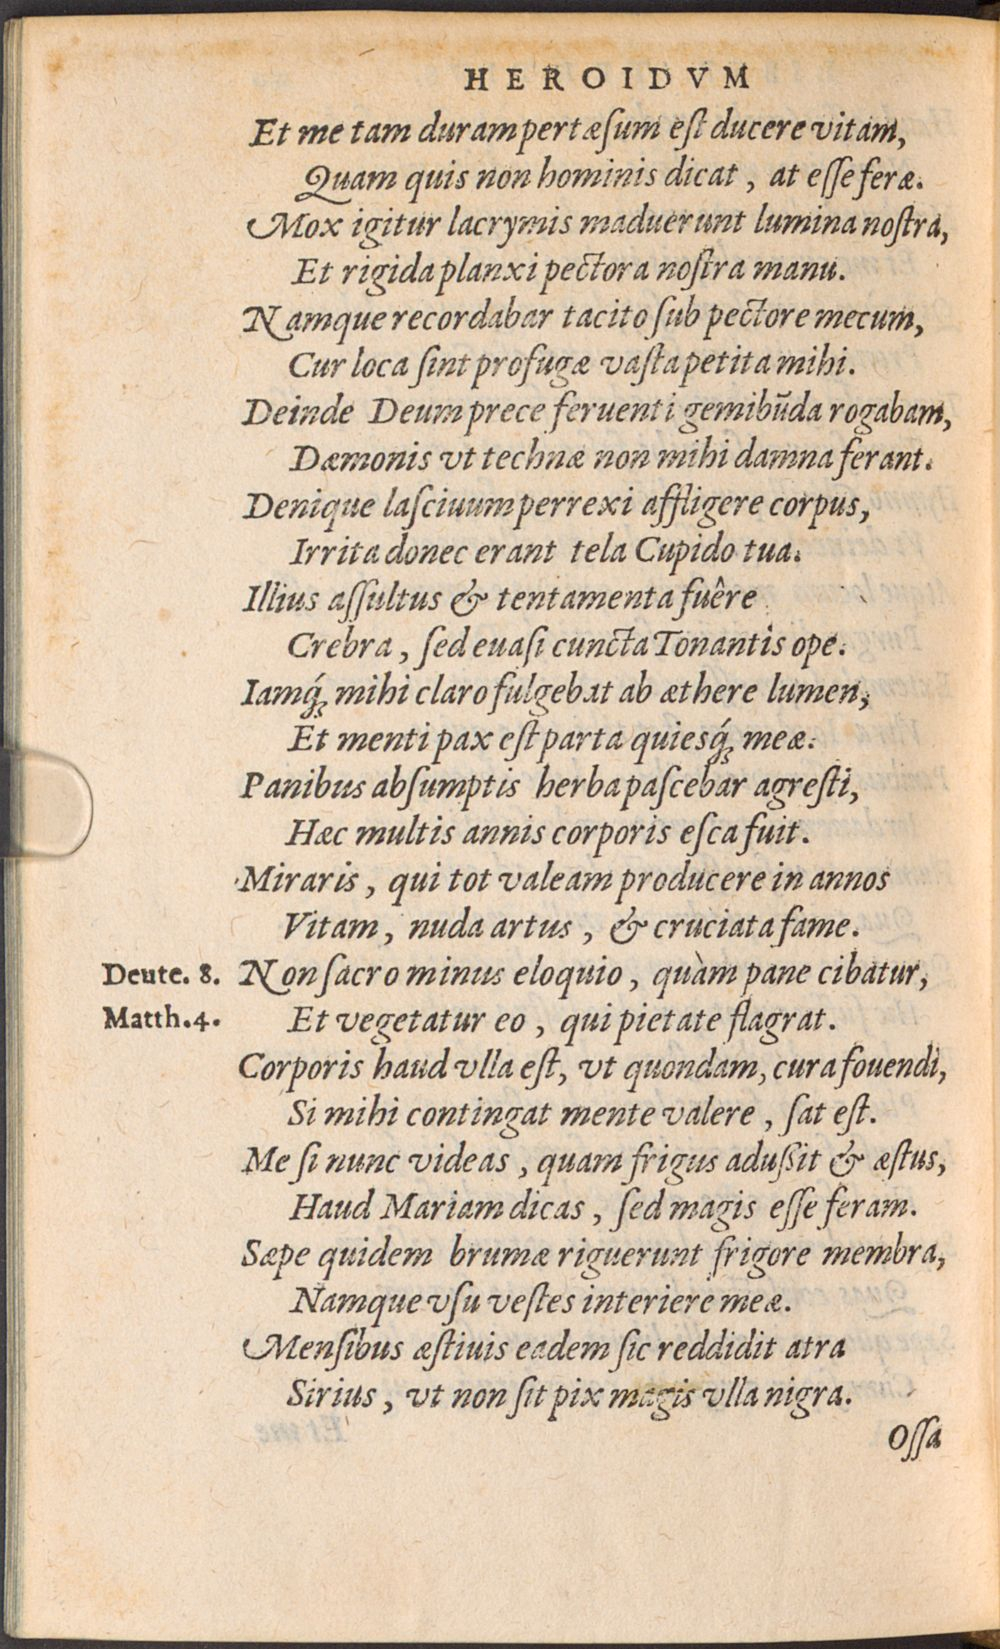 HEROIDVM
Et me tam duram pertæſum eſt ducere vitam,
Quam quis non hominis dicat, at eſſe feræ.
Mox igitur lacrymis maduerunt lumina noſtra,
Et rigida planxi pectora noſtra manu.
Namque recordabar tacito ſub pectore mecum,
Cur loca ſint profugæ vaſta petita mihi.
Deinde Deum prece feruenti gemibũda rogabam,
Dæmonis vt technæ non mihi damna ferant.
Denique laſciuum perrexi affligere corpus,
Irrita donec erant tela Cupido tua.
Illius aſſultus & tentamenta fuêre
Crebra, ſed euaſi cuncta Tonantis ope.
Iamq́ꝫ mihi claro fulgebat ab æthere lumen,
Et menti pax eſt parta quiesq́ꝫ meæ.
Panibus abſumptis herba paſcebar agreſti,
Hæc multis annis corporis eſca fuit.
Miraris, qui tot valeam producere in annos
Vitam, nuda artus, & cruciata fame.
Deute. 8. Non ſacro minus eloquio, quàm pane cibatur,
Matth. 4. Et vegetatur eo, qui pietate flagrat.
Corporis haud vlla eſt, vt quondam, cura fouendi,
Si mihi contingat mente valere, ſat eſt.
Me ſi nunc videas, quam frigus adußit & æſtus,
Haud Mariam dicas, ſed magis eſſe feram.
Sæpe quidem brumæ riguerunt frigore membra,
Namque vſu veſtes interiere meæ.
Menſibus æſtiuis eadem ſic reddidit atra
Sirius, vt non ſit pix magis vlla nigra.
Oſſa